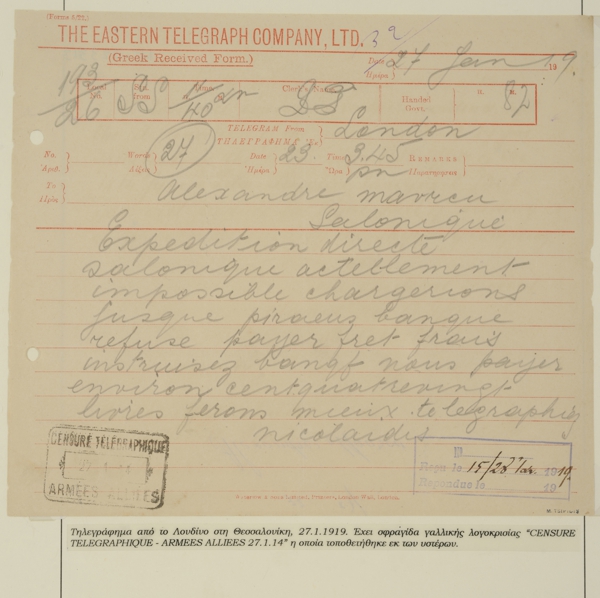 (Forms S.22.)
THE EASTERN TELEGRAPH COMPANY, LTD. 39
(Greek Received Form.)
Date
Ημέρα
27 Jan 1919.
Local No.
Sent from
Clerk's Name
Handed Govt.
82
TELEGRAM From
ΤΗΛΕΓΡΑΦΗΜΑ
London
No.
Αριθ.
Words
Λέξεις
27
Date
Ημέρα
23.
Time
Ώρα
3.45
pm
Remarks
Παρατηρήσεις
To
Πρός
Alexandre mavrcu
Salonique
Expedition directe
salonique acteblement
impossible chargerions
jusque piraeus banque
refuse payer fret frais
instruisez bangf nous payer
environ centquatrevingt
livres ferons mieux telegraphiez
nicolaidis
CENSURE TÉLÉGRAPHIQUE
27.1.14
ARMÉES ALLIÉES
R
Reçu le 15/28 Jan. 1919
Répondue le 19
Τηλεγράφημα από το Λονδίνο στη Θεσσαλονίκη, 27.1.1919. Έχει σφραγίδα γαλλικής λογοκρισίας "CENSURE
TELEGRAPHIQUE - ARMEES ALLIEES 27.1.14" η οποία τοποθετήθηκε εκ των υστέρων.